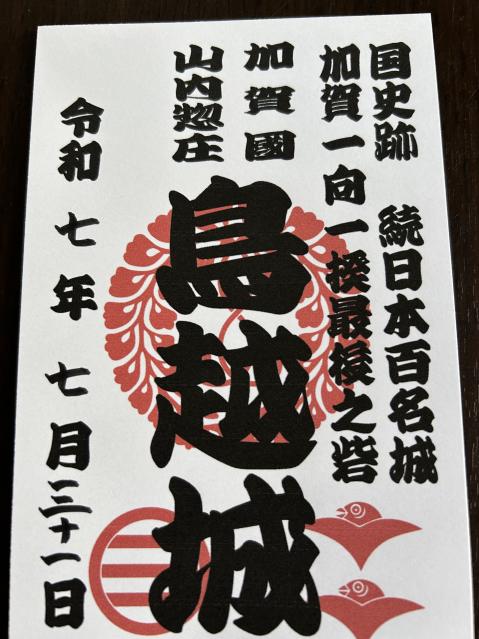 国史跡 続日本百名城
加賀一向一揆最後之砦
加賀國
山内惣庄
鳥越城
令和七年七月三十一日